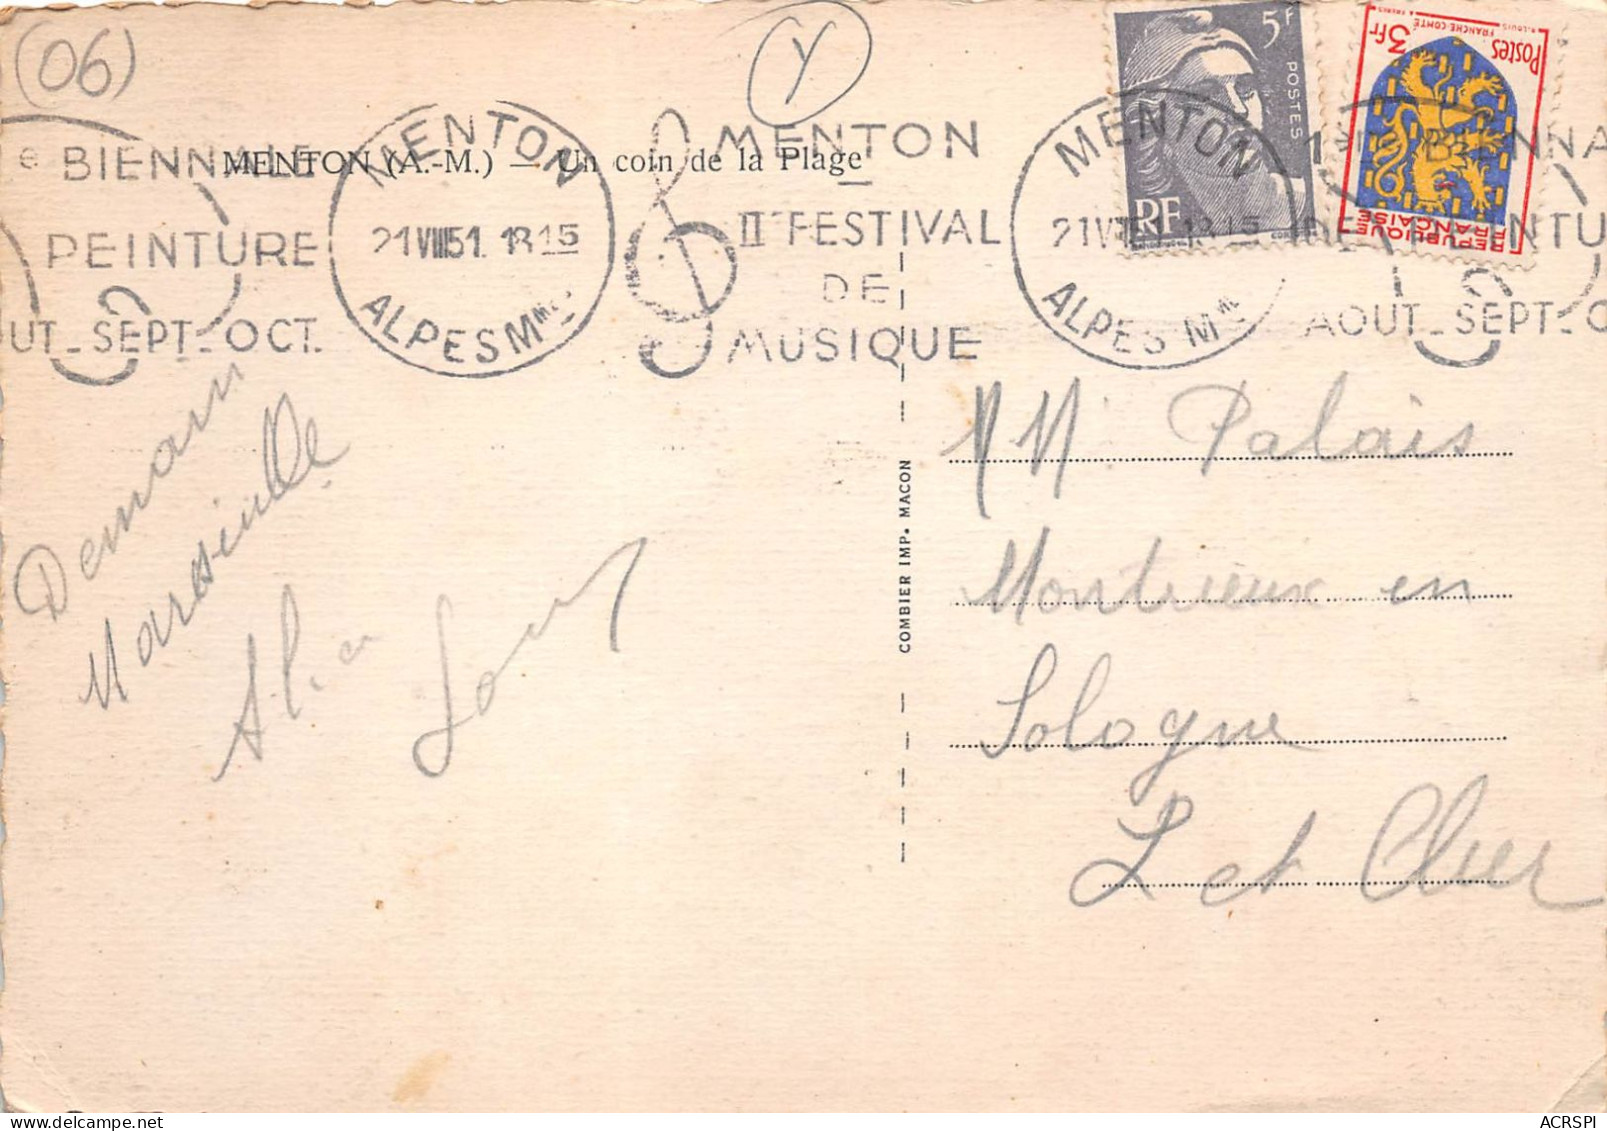 (06)
Y
MENTON (A.-M.) — Un coin de la Plage
e BIENNALE
PEINTURE
OUT_SEPT_OCT.
MENTON
21 VIII 51. 18 15
ALPES Mmes
MENTON
IIe FESTIVAL
DE
MUSIQUE
MENTON
21 VI 18 15
ALPES Mmes
1re BIENNA
DE PEINTU
AOUT_SEPT_O
5F
POSTES
RF
Postes
3fr
FRANCHE-COMTÉ
REPUBLIQUE
FRANÇAISE
Demain
Marseille
COMBIER IMP. MACON
MM. Palais
Montrieux en
Sologne
L et Cher
ACRSPI